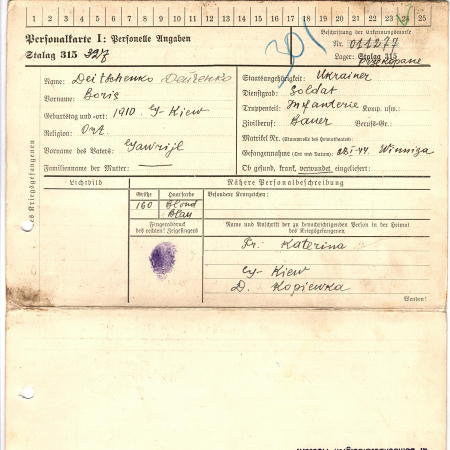 1 2 3 4 5 6 7 8 9 10 11 12 13 14 15 16 17 18 19 20 21 22 23 24 25
Personalkarte I: Personelle Angaben
Beschriftung der Erkennungsmarke
301
Nr. 011277
Stalag 315 327
Lager: Stalag 315
Przekopane
Des Kriegsgefangenen
Name: Deitschenko
Staatsangehörigkeit: Ukrainer
Vorname: Boris
Dienstgrad: Soldat
Geburtstag und -ort: 1910 Gy- Kiew
Truppenteil: Infanterie Komp. usw.:
Religion: Ort.
Zivilberuf: Bauer Berufs-Gr.:
Vorname des Vaters: Gawrijl
Matrikel Nr. (Stammrolle des Heimatstaates):
Familienname der Mutter: —
Gefangennahme (Ort und Datum): 22.I.44. Winniza
Ob gesund, krank, verwundet eingeliefert:
Lichtbild
Nähere Personalbeschreibung
Größe Haarfarbe Besondere Kennzeichen:
160 Blond
Blau
Fingerabdruck
des rechten! Zeigefingers
Name und Anschrift der zu benachrichtigenden Person in der Heimat
des Kriegsgefangenen
Fr. Katerina
Gy- Kiew
D. Kopiewka
Wenden!